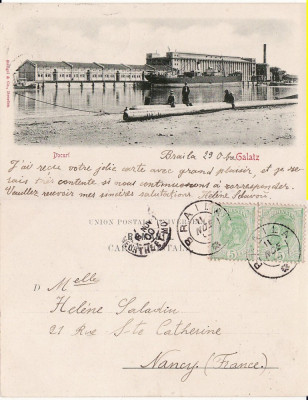 Stengel & Co., Dresden
Docuri
Galatz
Braila 29 Oct.
J'ai reçu votre jolie carte avec grand plaisir, et je se-
rais très contente si nous continuerons à correspondre.
Veuillez recevoir mes sincères salutations Hélène
UNION POSTALE UNIVERSELLE
CARTE POSTALE
BRAILA
BRAILA
11 NOV
D
Melle
Helène Saladin
21 Rue S-te Catherine
Nancy (France.)